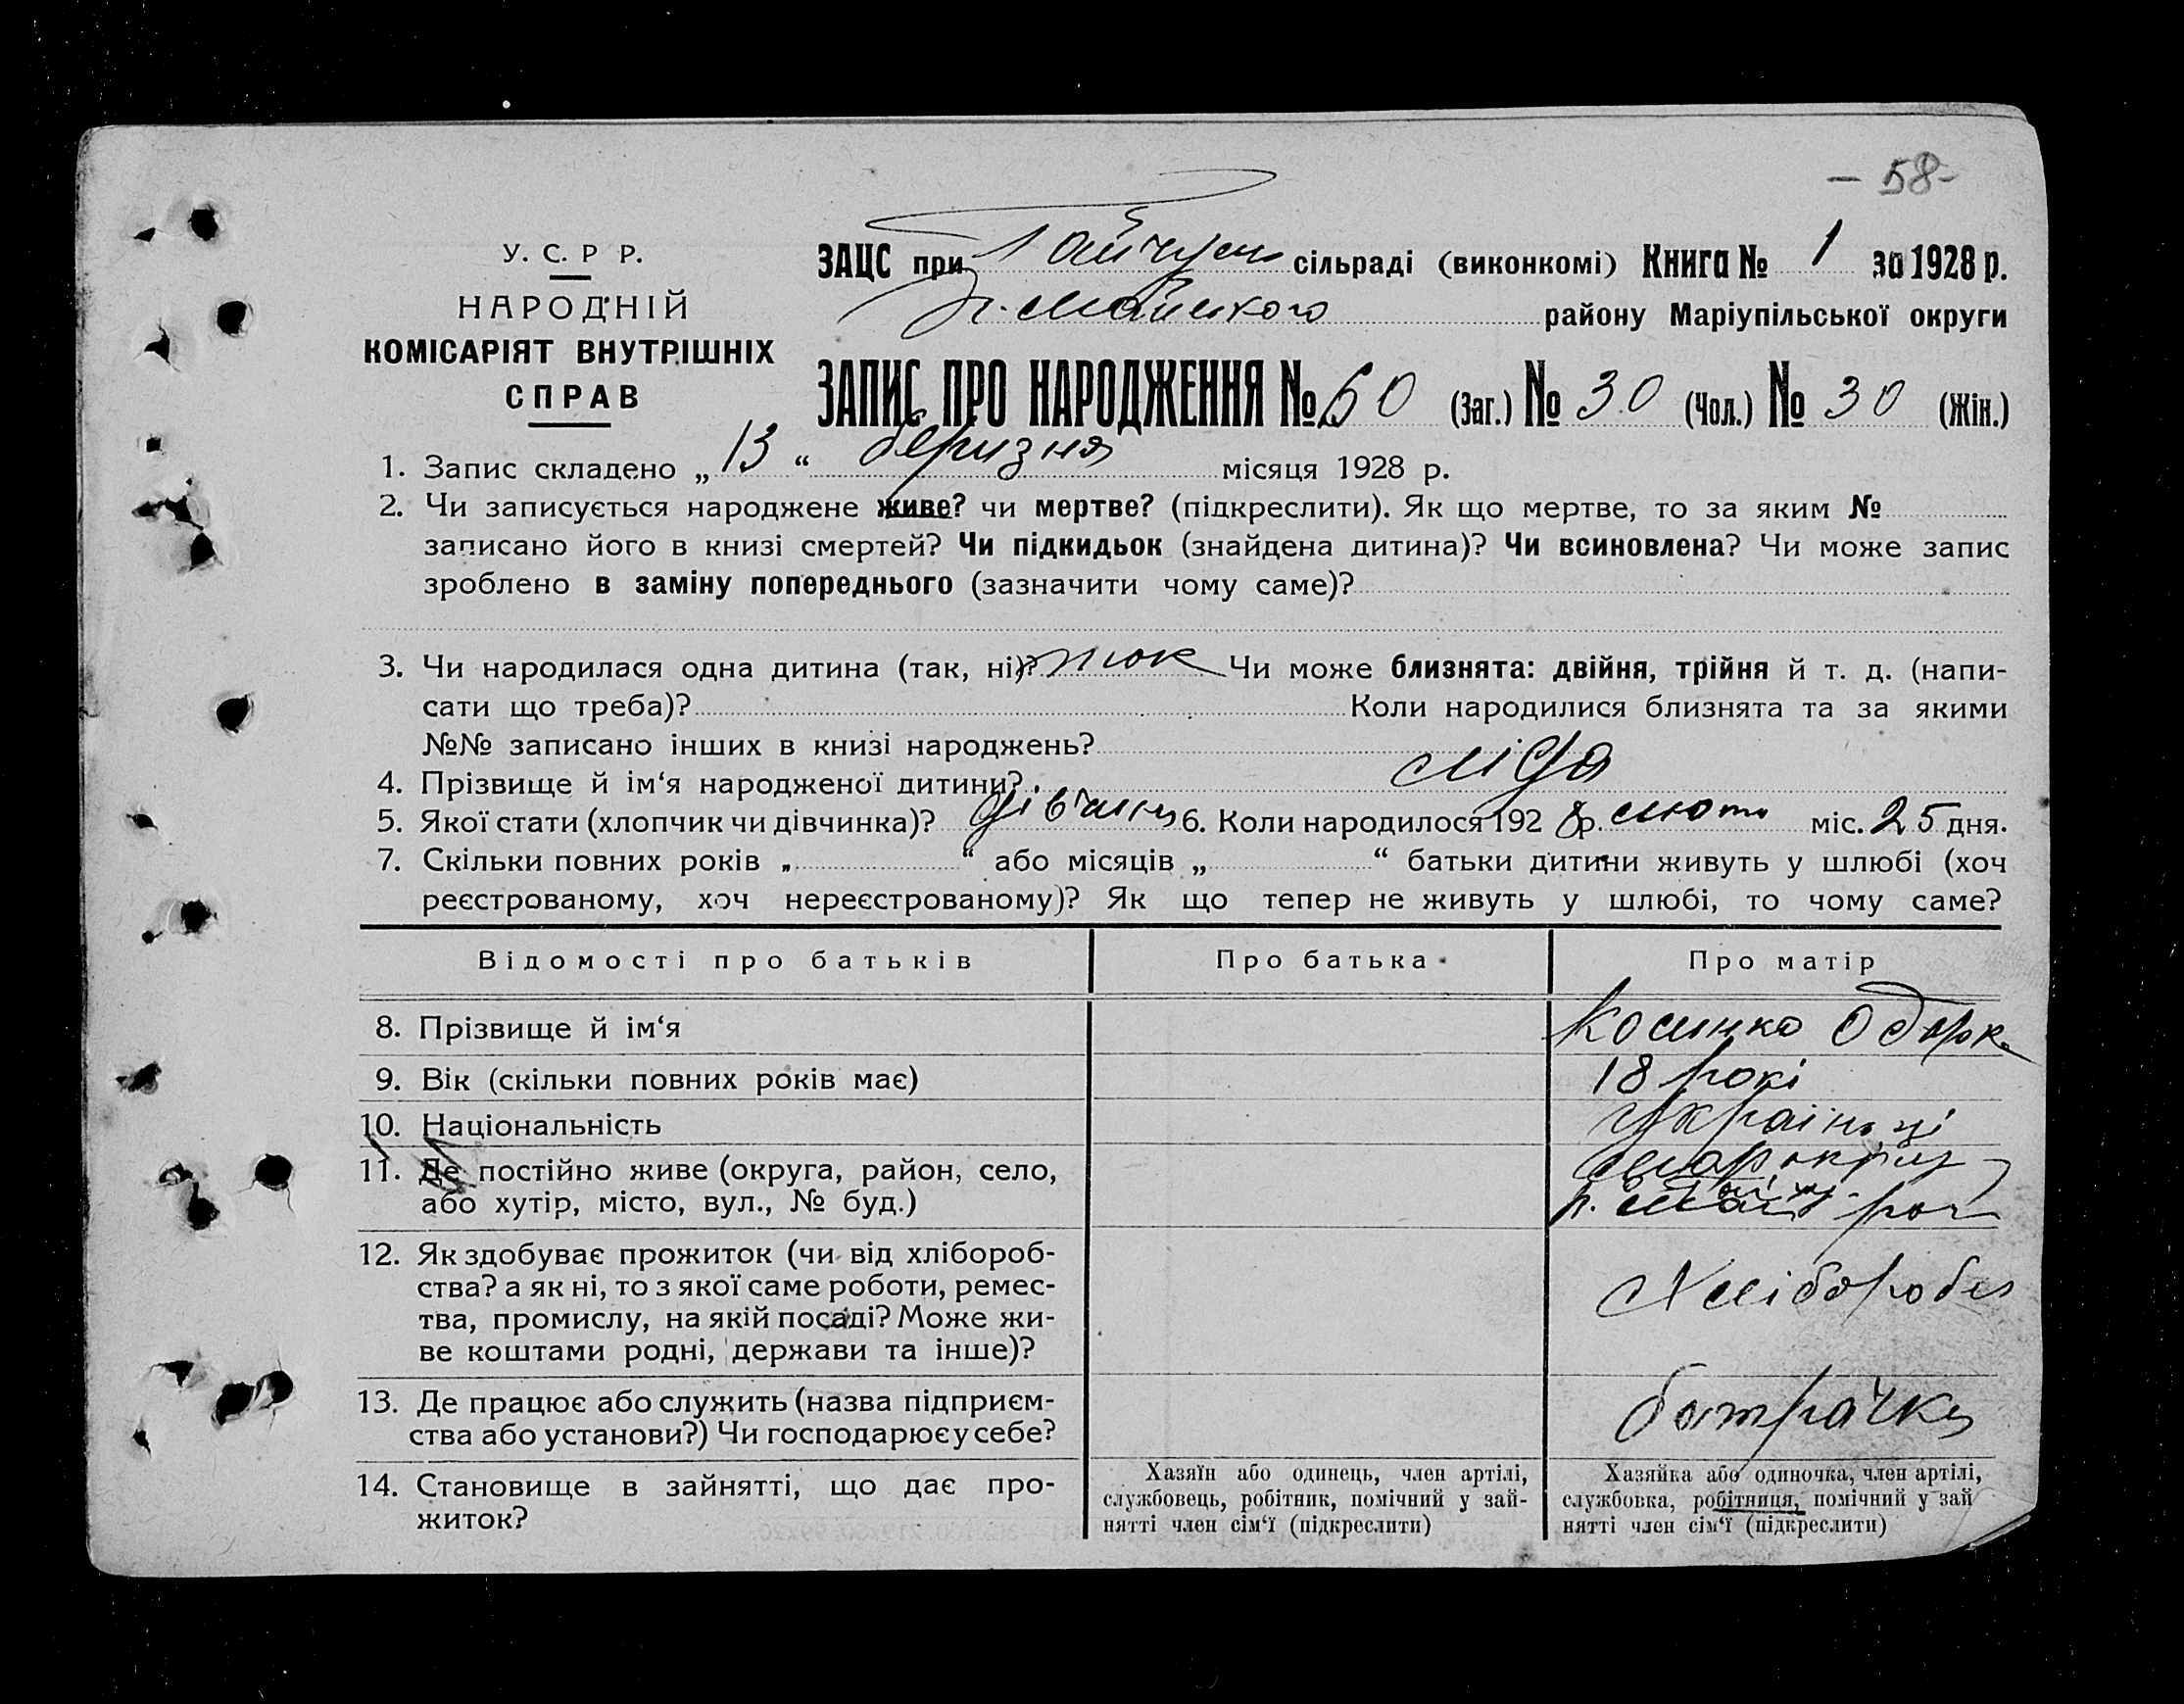 - 58 -
У. С. Р Р.
НАРОДНІЙ
КОМІСАРІЯТ ВНУТРІШНІХ
СПРАВ
ЗАЦС при Гайчул сільраді (виконкомі) Книга № 1 за 1928 р.
району Маріупільської округи
ЗАПИС ПРО НАРОДЖЕННЯ № 60 (Заг.) № 30 (Чол.) № 30 (Жін.)
1. Запис складено „ 13 “ беризня місяця 1928 р.
2. Чи записується народжене живе? чи мертве? (підкреслити). Як що мертве, то за яким №
записано його в книзі смертей? Чи підкидьок (знайдена дитина)? Чи всиновлена? Чи може запис
зроблено в заміну попереднього (зазначити чому саме)?
3. Чи народилася одна дитина (так, ні)? так Чи може близнята: двійня, трійня й т. д. (напи-
сати що треба)? Коли народилися близнята та за якими
№№ записано інших в книзі народжень?
4. Прізвище й ім‘я народженої дитини? Ліда
5. Якої стати (хлопчик чи дівчинка)? дівчина 6. Коли народилося 192 8 р. люто міс. 25 дня.
7. Скільки повних років „ “ або місяців „ “ батьки дитини живуть у шлюбі (хоч
реєстрованому, хоч нереєстрованому)? Як що тепер не живуть у шлюбі, то чому саме?
Відомості про батьків
Про батька
Про матір
8. Прізвище й ім‘я
Одарка
9. Вік (скільки повних років має)
18 рокі
10. Національність
Українці
11. Де постійно живе (округа, район, село,
або хутір, місто, вул., № буд.)
12. Як здобуває прожиток (чи від хлібороб-
ства? а як ні, то з якої саме роботи, ремес-
тва, промислу, на якій посаді? Може жи-
ве коштами родні, держави та інше)?
Хлібороба
13. Де працює або служить (назва підприєм-
ства або установи?) Чи господарює у себе?
батрачка
14. Становище в зайнятті, що дає про-
житок?
Хазяїн або одинець, член артілі,
службовець, робітник, помічний у зай-
нятті член сім‘ї (підкреслити)
Хазяйка або одиночка, член артілі,
службовка, робітниця, помічний у зай
нятті член сім‘ї (підкреслити)